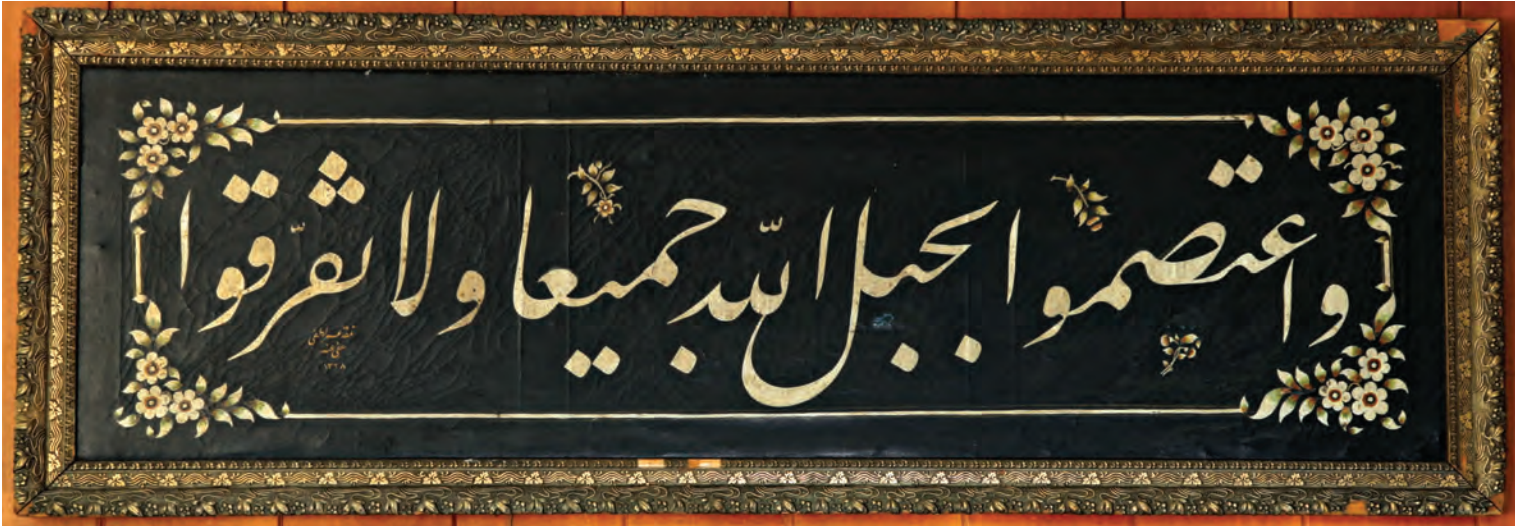 واعتصموا بحبل اللّه جميعا ولا تفرّقوا